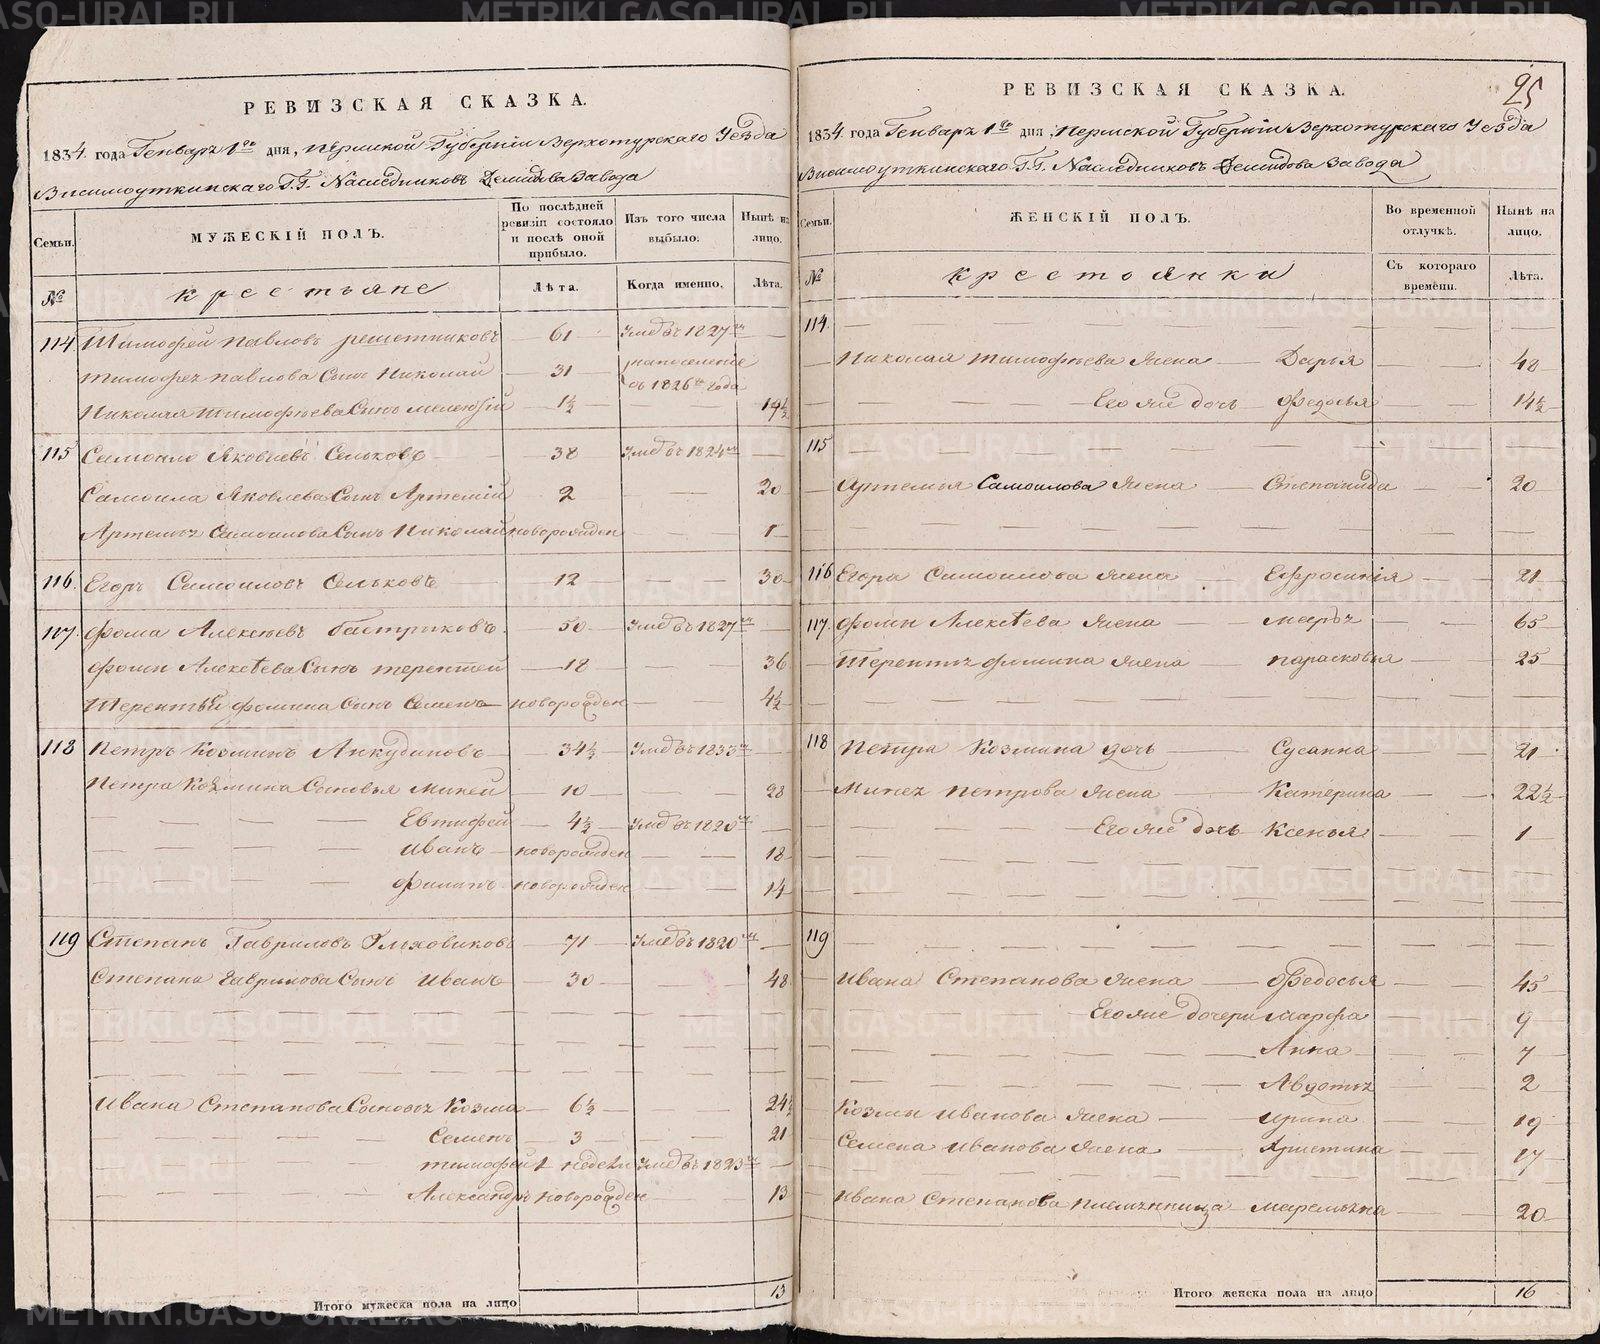 РЕВИЗСКАЯ СКАЗКА.
1834. года Генваря 1го дня, Пермской Губернiи Верхотурскаго Уезда
Висимоуткинскаго Г.Г. Наследниковъ Демидова Завода
Семьи.
МУЖЕСКIЙ ПОЛЪ.
По послѣдней ревизiи состояло и послѣ оной прибыло.
Изъ того числа выбыло.
Нынѣ на лицо.
№
крестьяне
Лѣта.
Когда именно.
Лѣта.
114 Тимофей Павловъ Решетниковъ 61 Умеръ въ 1827м
Тимофея Павлова Сынъ Николай 31 на поселенiе въ 1826м года
Николая Тимофѣева Сынъ Мелентiй 1½ 19½
115 Самойло Яковлевъ Сельковъ 38 Умеръ въ 1824м
Самоила Яковлева Сынъ Артемiй 2 20
Артемья Самоилова Сынъ Николай новорожден 1
116. Егоръ Самоиловъ Сельковъ 12 30
117. Фома Алексѣевъ Бастриковъ 50 Умеръ въ 1827м
Фомы Алексѣева Сынъ Терентей 18 36
Терентья Фомина Сынъ Семенъ новорожден 4½
118 Петръ Козминъ Анкудиновъ 34½ Умеръ въ 1833м
Петра Козмина Сыновья Миней 10 28
Евтифей 4½ Умеръ въ 1820м
Иванъ новорожден 18
Филипъ новорожден 14
119 Степанъ Гавриловъ 71 Умеръ въ 1820м
Степана Гаврилова Сынъ Иванъ 30 48
Ивана Степанова Сыновья Козма 6½ 24½
Семенъ 3 21
Тимофей 1 недели Умеръ въ 1823м
Александръ новорожден 13
Итого мужеска пола на лицо 13
25
РЕВИЗСКАЯ СКАЗКА.
1834. года Генваря 1го дня, Пермской Губернiи Верхотурскаго Уезда
Висимоуткинскаго Г.Г. Наследниковъ Демидова Завода
Семьи.
ЖЕНСКIЙ ПОЛЪ.
Во временной отлучкѣ.
Нынѣ на лицо.
№
крестьянки
Съ котораго времени.
Лѣта.
114.
Николая Тимофѣева жена Дарья 48
Его же дочь Федосья 14½
115
Артемья Самоилова жена Степанида 20
116 Егора Самоилова жена Ефросинiя 21
117. Фомы Алексѣева жена Марья 65
Терентья Фомина жена Парасковья 25
118 Петра Козмина дочь Сусанна 21
Минея Петрова жена Катерина 22½
Его же дочь Ксенья 1
119
Ивана Степанова жена Федосья 45
Его же дочери Марфа 9
Анна 7
Авдотья 2
Козмы Иванова жена Ирина 19
Семена Иванова жена Христина 17
Ивана Степанова племянница Маремьяна 20
Итого женска пола на лицо 16
METRIKI.GASO-URAL.RU